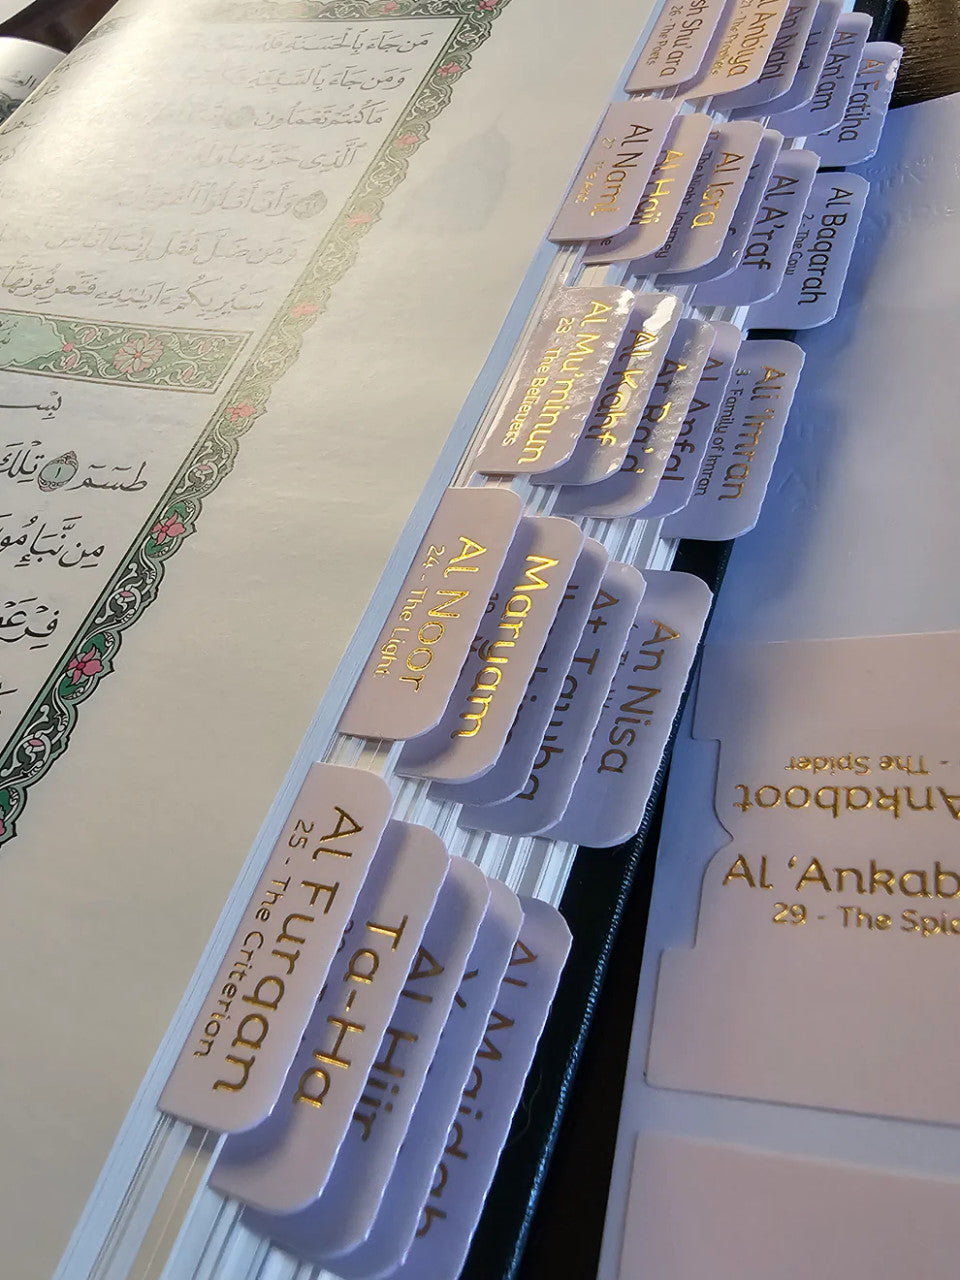 مَن جَآءَ بِٱلْحَسَنَةِ فَلَهُۥ
وَمَن جَآءَ بِٱلسَّيِّئَةِ
مَا كُنتُمْ تَعْمَلُونَ
ٱلَّذِى حَرَّمَهَا وَلَهُۥ
وَأَنْ أَتْلُوَا۟ ٱلْقُرْءَانَ
وَمَن ضَلَّ فَقُلْ إِنَّمَآ أَنَا۠ مِنَ
سَيُرِيكُمْ ءَايَٰتِهِۦ فَتَعْرِفُونَهَا
بِسْــ
طسٓمٓ ١ تِلْكَ
مِن نَّبَإِ مُو
فِرْعَوْ
Ash Shu'ara
26 - The Poets
Al Anbiya
21 - The Prophets
An Nahl
Al An'am
Al Fatiha
Al Naml
27 - The Ants
Al Hajj
Al Isra
17 - The Night Journey
Al A'raf
Al Baqarah
2 - The Cow
Al Mu'minun
23 - The Believers
Al Kahf
Ar Ra'd
Al Anfal
Ali 'Imran
3 - Family of Imran
Al Noor
24 - The Light
Maryam
At Tauba
An Nisa
Al Furqan
25 - The Criterian
Ta-Ha
Al Hijr
Al Maidah
- The Spider
Ankaboot
Al 'Ankab
29 - The Spid